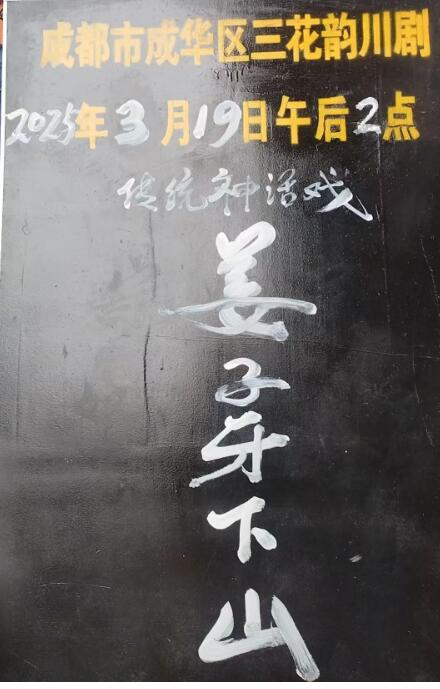 成都市成华区三花韵川剧
2025年3月19日午后2点
传统神话戏
姜子牙下山